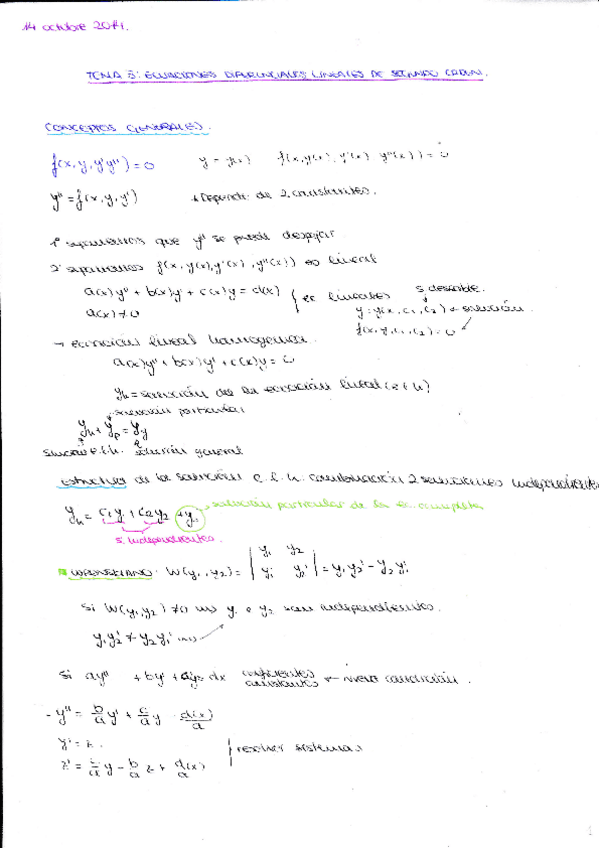 14 octubre 2014.
TEMA 3: ECUACIONES DIFERENCIALES LINEALES DE SEGUNDO ORDEN.
CONCEPTOS GENERALES.
f(x, y, y' y'') = 0    y = y(x)    f(x, y(x), y'(x) y''(x)) = 0
y'' = f(x, y, y')    Depende de 2 constantes.
1º suponemos que y'' se puede despejar
2º suponemos f(x, y(x), y'(x), y''(x)) es lineal
a(x) y'' + b(x) y' + c(x) y = d(x) } ec lineales
a(x) ≠ 0
y = y(x, c1, c2) ← solución
f(x, y, c1, c2) = 0
→ ecuación lineal homogenea.
a(x) y'' + b(x) y' + c(x) y = 0
yh = solución de la ecuación lineal (e l h)
solución particular
yh + yp = yg
solución e.l.h. solución general
estructura de la solución e.l.h. combinación 2 soluciones independientes
yh = c1 y1 + c2 y2 + y1 solución particular de la ec. completa
s. independientes.
WRONSKIANO: W(y1, y2) = | y1 y2 |
| y1' y2' | = y1 y2' - y2 y1'
Si W(y1, y2) ≠ 0 → y1 e y2 son independientes.
y1 y2' ≠ y2 y1'
Si ay'' + by' + dx coeficientes constantes ← nueva condición.
- y'' = b/a y' + c/a y d(x)/a
y' = z.
} resolver sistemas
z' = c/a y - b/a z + d(x)/a
1